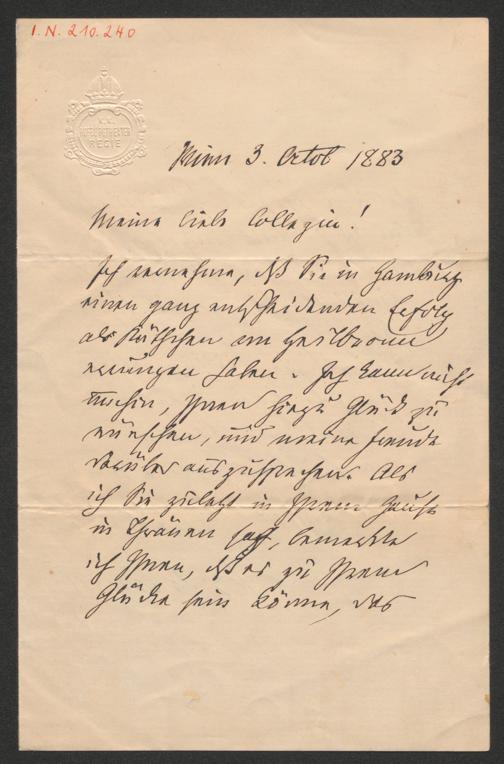 I.N. 210.240
K.K.
HOFBURGTHEATER
REGIE
Wien 3. Octob 1883
Meine liebe Collegin!
Ich vernehme, daß Sie in Hamburg
einen ganz entscheidenden Erfolg
als Käthchen von Heilbronn
errungen haben. Ich kann nicht
umhin, Ihnen hiezu Glück zu
wünschen, und meine Freude
darüber auszusprechen. Als
ich Sie zuletzt in Ihrem Hause
in Thränen sah, bemerkte
ich Ihnen, daß es zu Ihrem
Glücke sein könne, das